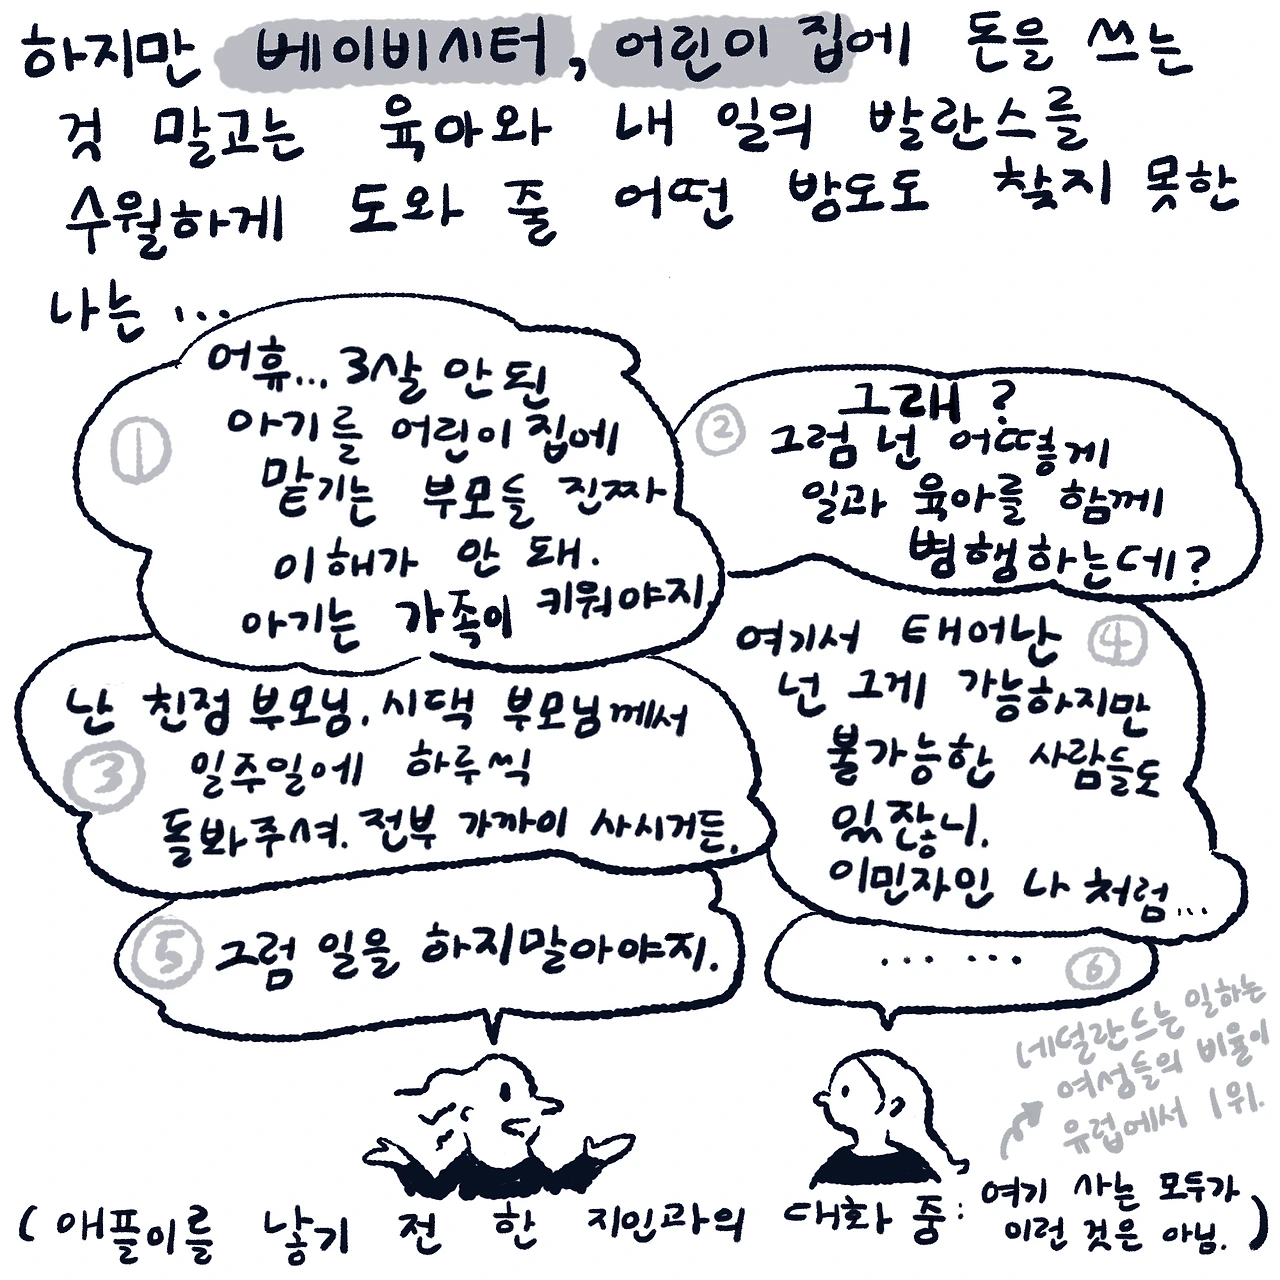 하지만 베이비시터, 어린이 집에 돈을 쓰는
것 말고는 육아와 내 일의 발란스를
수월하게 도와 줄 어떤 방도도 찾지 못한
나는 ...
①
어휴... 3살 안 된
아기를 어린이 집에
맡기는 부모들 진짜
이해가 안 돼.
아기는 가족이 키워야지.
②
그래?
그럼 넌 어떻게
일과 육아를 함께
병행하는데?
③
난 친정 부모님, 시댁 부모님께서
일주일에 하루씩
돌봐주셔. 전부 가까이 사시거든.
④
여기서 태어난
넌 그게 가능하지만
불가능한 사람들도
있잖니.
이민자인 나 처럼...
⑤
그럼 일을 하지말아야지.
⑥
... ...
네덜란드는 일하는
여성들의 비율이
유럽에서 1위.
(애플이를 낳기 전 한 지인과의 대화 중: 여기 사는 모두가
이런 것은 아님.)